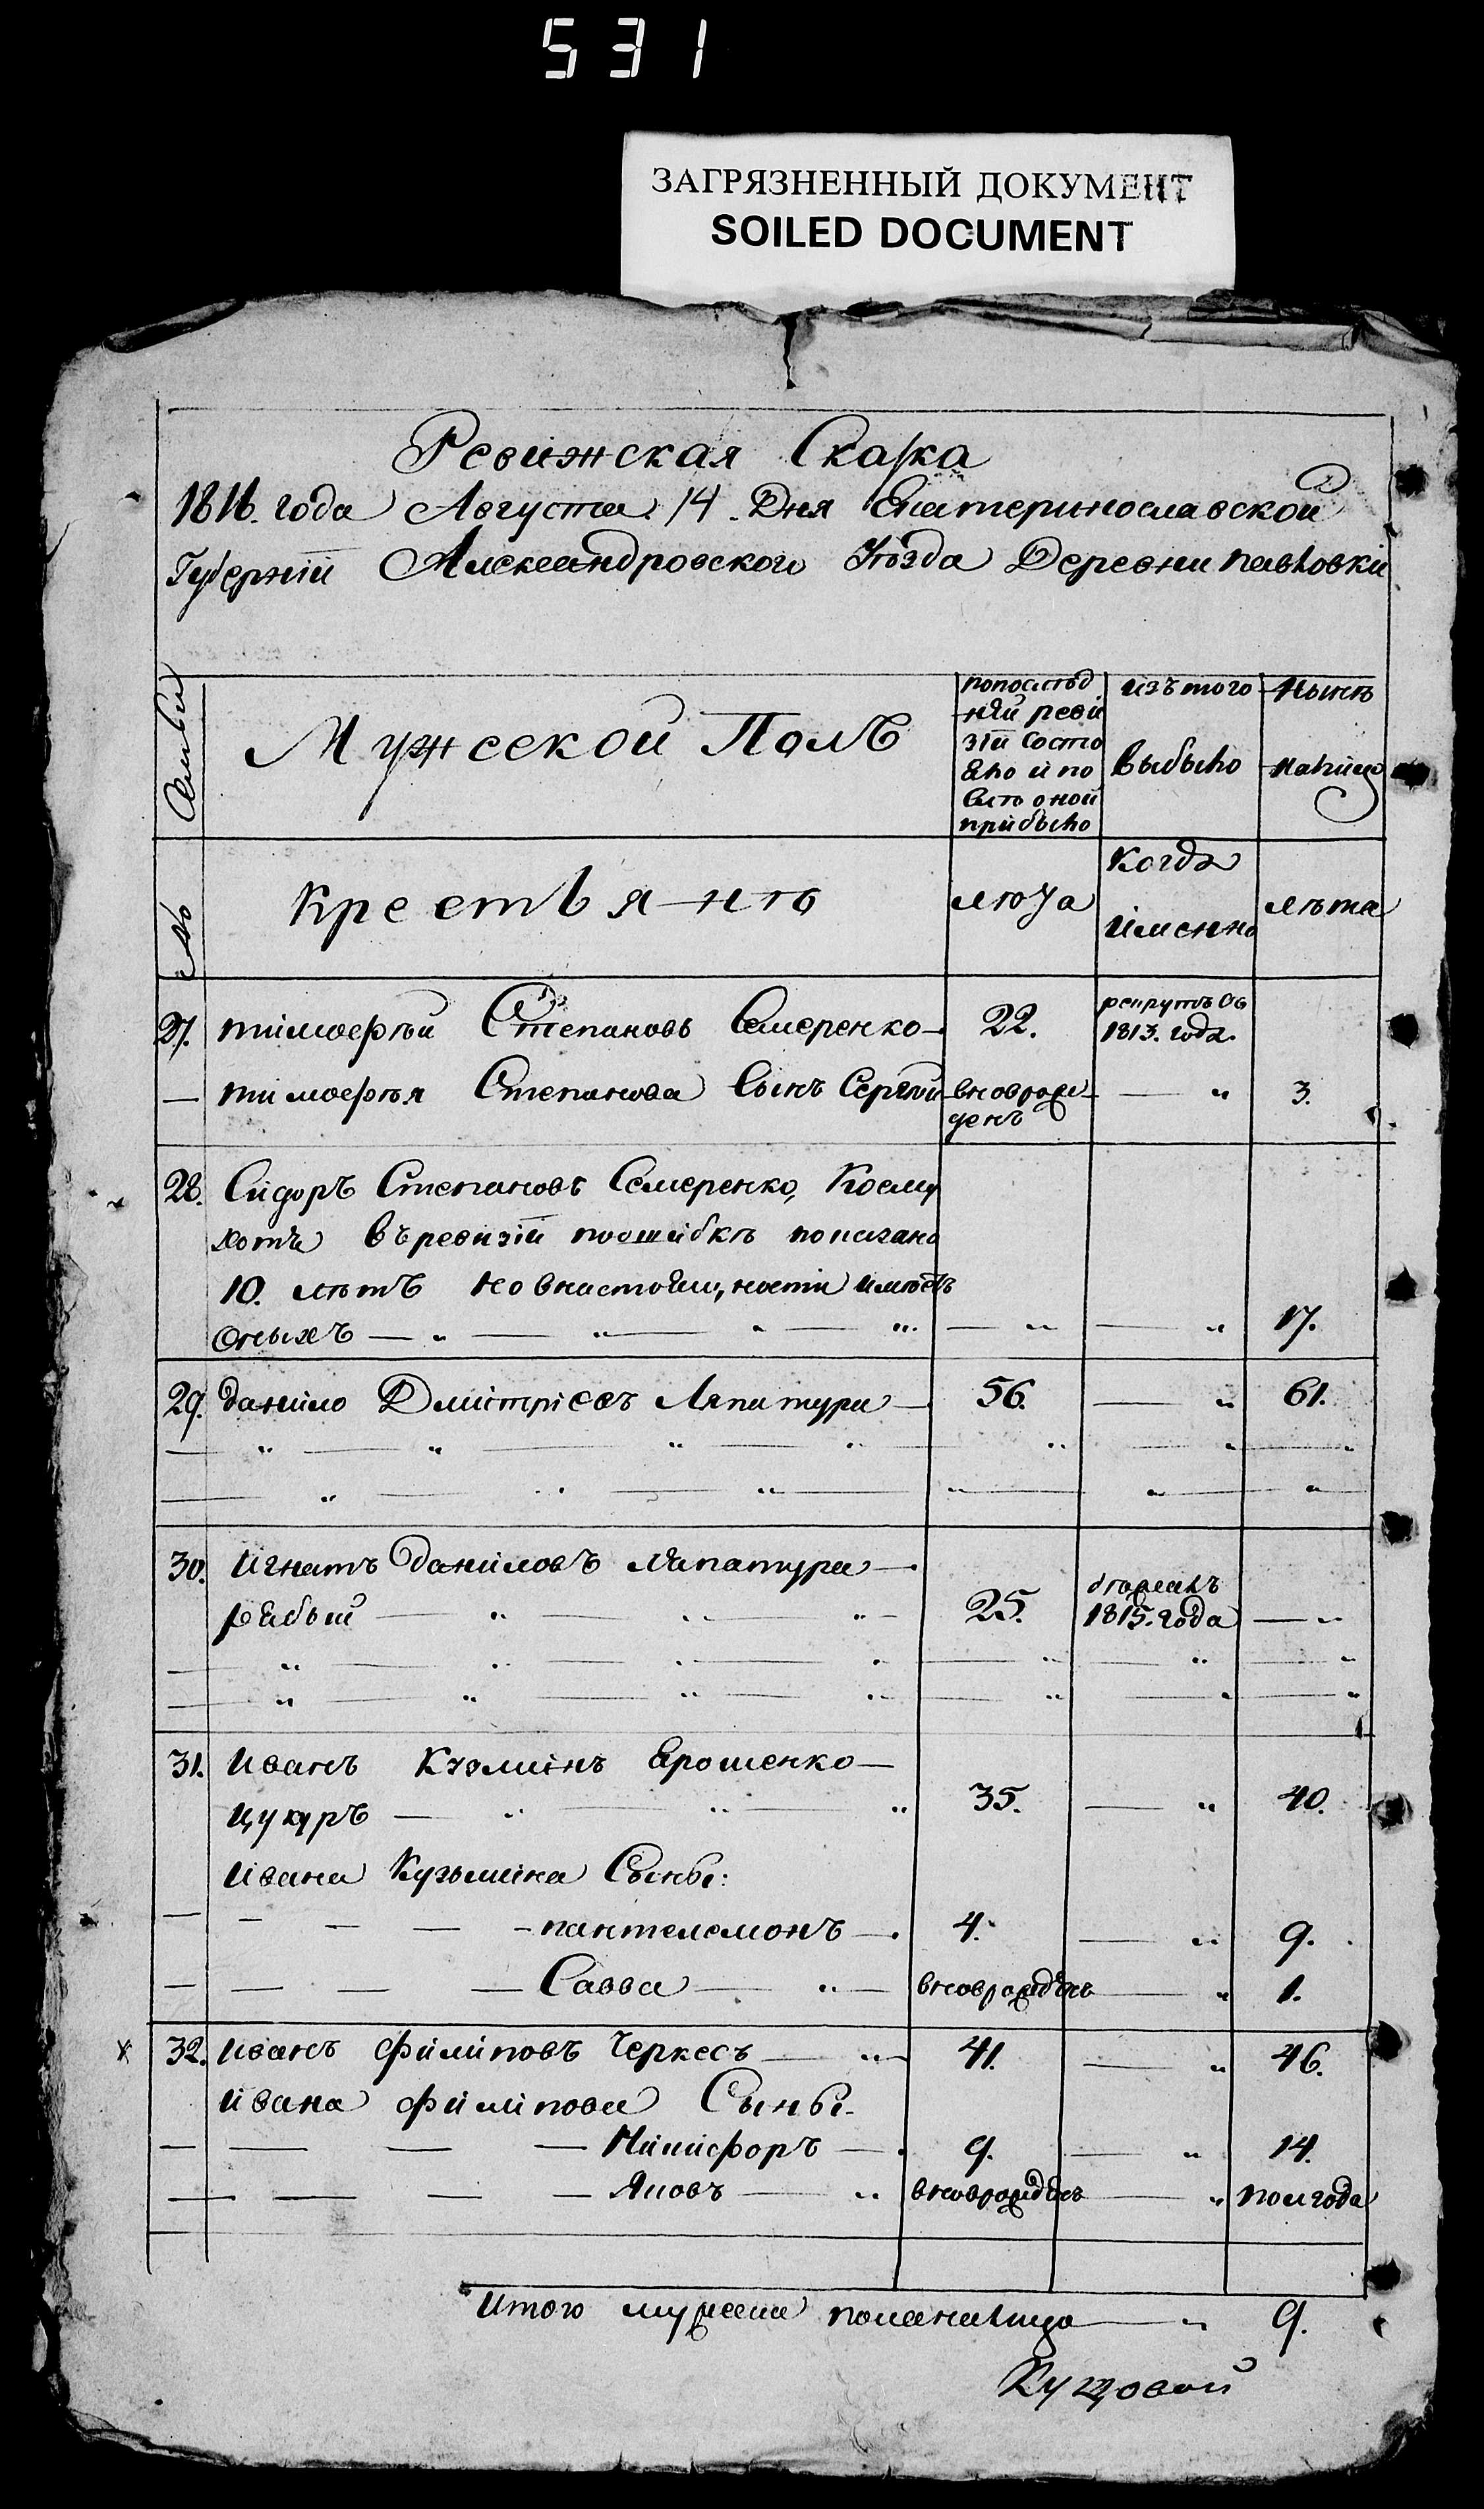 531
ЗАГРЯЗНЕННЫЙ ДОКУМЕНТ
SOILED DOCUMENT
Ревижская Сказка
1816. года Августа 14. Дня Екатеринославской
Губернїй Александровского Уѣзда Деревни павловки
Мужеской Полъ
попослѣд нѣй реви зїй состо яло и по слѣ оной прибыло
изъ того выбыло
Нынѣ налицо
№
Крестьянъ
лѣта
когда именно
лѣта
27. тимофѣй Степановъ Семеренко 22. рекрутъ Съ 1813. года.
— тимофѣя Степанова Сынъ Сергѣй вноврож денъ — „ 3.
28. Сидоръ Степановъ Семеренко, Коему
хотя въревизїй поошибкѣ показано
10. лѣтъ но внастоящности имѣетъ
Оныхъ — „ — „ — „ — „ — „ — „ 17.
29. данило Дмитрїевъ Ляпатура — 56. — „ 61.
30. Игнатъ Даниловъ Ляпатура —
рябый — „ „ „ — 25. 1815. года — „
31. Иванъ Кузминъ Ярошенко —
цукуръ — „ — „ — „ 35. — „ 40.
Ивана Кузьмина Сыны:
— — — — пантелемонъ — 4. — „ 9.
— — — — Савва — „ — вноврожденъ — „ 1.
32. иванъ Филиповъ Черкесъ — „ — 41. — „ 46.
ивана филипова Сыны.
— — — — Никифоръ — 9. — „ 14.
— — — — Яковъ — „ вноврожденъ — „ пол года
Итого мужеска полана лицо — „ 9.